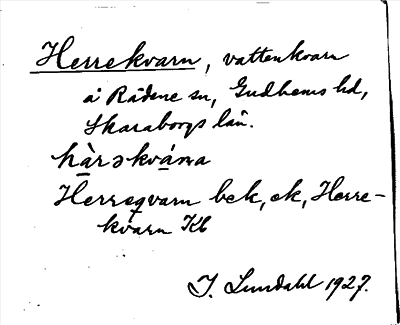 Herrekvarn, vattenkvarn
å Rådene sn, Gudhems hd,
Skaraborgs län.
hàrəkvá́ṇa
Herreqvarn bek, ek, Herre-
kvarn Kb
I. Lundahl 1927.